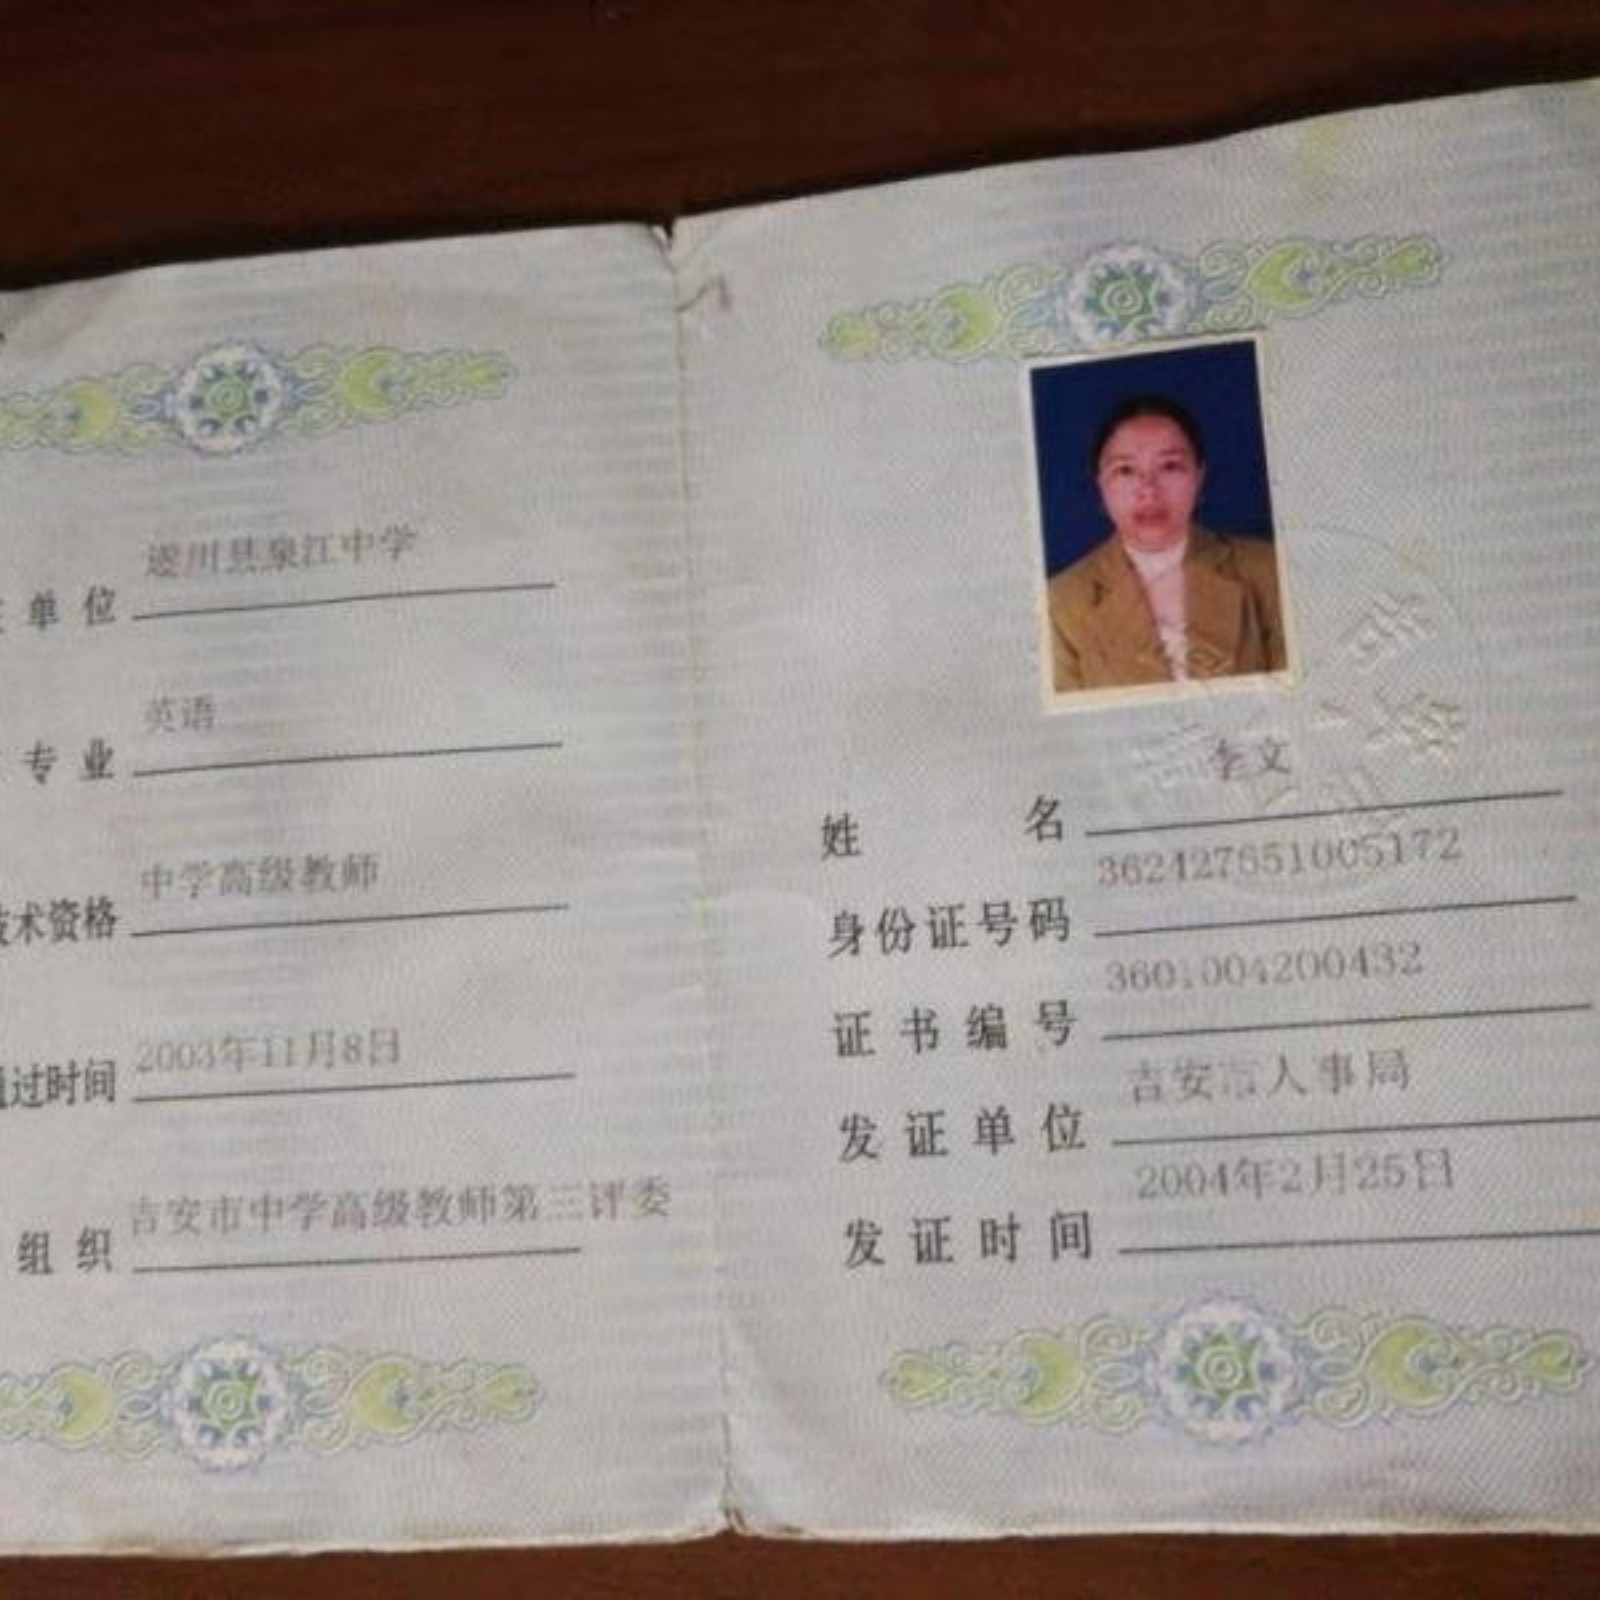 遂川县泉江中学
单位
英语
专业
中学高级教师
技术资格
2003年11月8日
通过时间
吉安市中学高级教师第三评委
组织
李文
姓名
362427651005172
身份证号码
3601004200432
证书编号
吉安市人事局
发证单位
2004年2月25日
发证时间